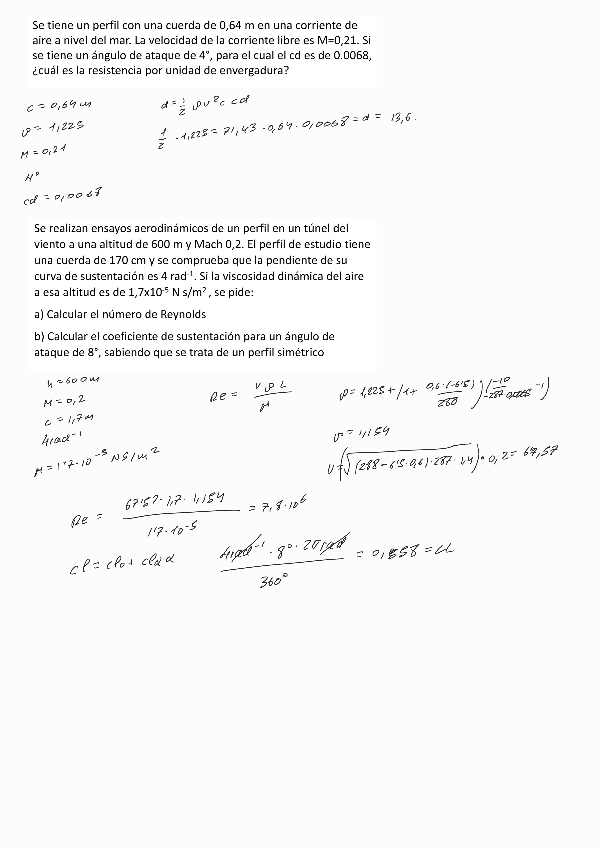 Se tiene un perfil con una cuerda de 0,64 m en una corriente de
aire a nivel del mar. La velocidad de la corriente libre es M=0,21. Si
se tiene un ángulo de ataque de 4°, para el cual el cd es de 0.0068,
¿cuál es la resistencia por unidad de envergadura?
c = 0,64 m
d = 1/2 ρ v² c cd
ρ = 1,225
1/2 · 1,225 = 71,43 · 0,64 · 0,0068 = d = 13,6.
M = 0,21
4°
cd = 0,0068
Se realizan ensayos aerodinámicos de un perfil en un túnel del
viento a una altitud de 600 m y Mach 0,2. El perfil de estudio tiene
una cuerda de 170 cm y se comprueba que la pendiente de su
curva de sustentación es 4 rad⁻¹. Si la viscosidad dinámica del aire
a esa altitud es de 1,7x10⁻⁵ N s/m² , se pide:
a) Calcular el número de Reynolds
b) Calcular el coeficiente de sustentación para un ángulo de
ataque de 8°, sabiendo que se trata de un perfil simétrico
h = 600 m
M = 0,2
c = 1,7 m
4 rad⁻¹
μ = 1'7·10⁻⁵ NS/m²
Re = V ρ L / μ
ρ = 1,225
ρ = 1,154
V = √(288 - 6'5·0,6)·287·1,4 · 0,2 = 67,57
Re = 67'57·1,7·1,154 / 1'7·10⁻⁵ = 7,8·10⁶
cl = clo + clα α
4 rad⁻¹ · 8° · 2π rad / 360° = 0,558 = cl